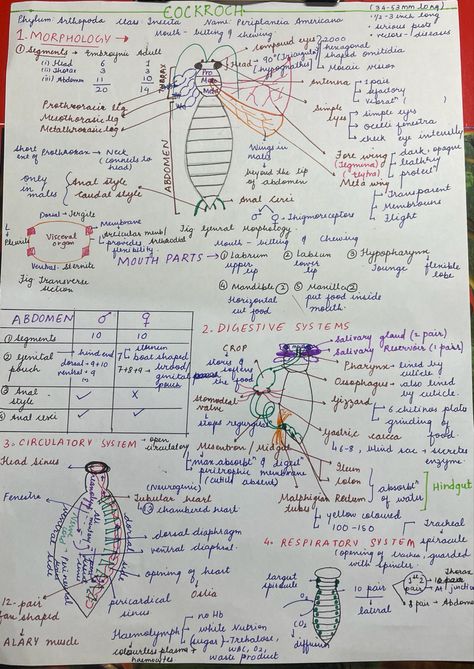 COCKROCH
Phylum: Arthopoda Class: Insecta Name: Periplaneta Americana
(34-53mm long)
1/2-3 inch long
serious pests
vectors - diseases
1. MORPHOLOGY
Mouth - biting & chewing
① Segments → Embroynic Adult
(i) Head 6 1
(ii) Thorax 3 3
(iii) Abdomen 11 10
20 14
compound eyes 2000
hexagonal
shaped omitidia
mosaic vision
Head - 90° (Triangular)
(hypognathes)
Pro
Meso
Meta
THORAX
ABDOMEN
antenna
1 pair
sensory
Prothroraric leg
Mesothoraric leg
Metathroraric leg
simple
eyes
simple eyes
ocelli fenestra
check eye intensity
short
ext of
Prothorax → Neck
(connects to
head)
Fore wing
(Tegmina)
(elytra)
dark, opaque
leathry
protect
Meta wing
Transparent
Membranous
Flight
Wings in
male
beyond the tip
of abdomen
only
in
males
anal style
caudal style
anal cerci
♂ ♀
Thigmoreceptors
Dorsal - Tergite
Membrane
articular memb/
arthrodial
provides
flexibility
Visceral
organ
Pleurite
Ventral - Sternite
Fig Transverse
section
Fig General Morphology
Mouth - biting & Chewing
MOUTH PARTS →
① Labrum
upper
lip
② Labium
lower
lip
③ Hypopharynx
Tounge
flexible
lobe
④ Mandible ②
Horizontal
cut food
⑤ Maxilla ②
put food inside
mouth
ABDOMEN ♂ ♀
① Segments 10 10
② Genital
pouch
hind end
dorsal - 9+10
ventral - 9
7th sternum
boat shaped
7+8+9 → brood/
genital
pouch
③ Anal
style ✓ X
④ Anal cerci ✓ ✓
2. DIGESTIVE SYSTEMS
CROP
stores &
softens
the
food
salivary gland (2 pair)
salivary Reservoir (1 pair)
Pharynx - lined by
cuticle
Oesophagus - also lined
by cuticle.
gizzard
6 chitinous plates
grinding of
food.
stomodeal
valve
stops regurgit
gastric caecca
6-8, blind sac → secretes
enzyme.
Mesentron / Midgut
max. absorbt & digest
peritrophic membrane
(cuticle absent)
Ileum
colon
Rectum
absorbt
of water
Hindgut
Malphigian
tubes
yellow coloured
100-150
3. CIRCULATORY SYSTEM → open
circulatory
Head sinus
Fenestrae
(Neurogenic)
Tubular heart
13 chambered heart
dorsal diaphragm
ventral diaphragm
opening of heart
Ostia
pericardial
sinus
12-pair
fan shaped
ALARY muscle
Haemolymph
no Hb
white Nutrion
(sugar) - Trehalose,
WBC, O2,
waste product
colourless plasma +
haemocytes
4. RESPIRATORY SYSTEM
Tracheal
spiracule
(opening of trachea, guarded
with spincter
largest
spiracle
O2
CO2
diffusion
10 pair
lateral
1st 2
pair
Thorax
10 pair
8 pair → Abdomen